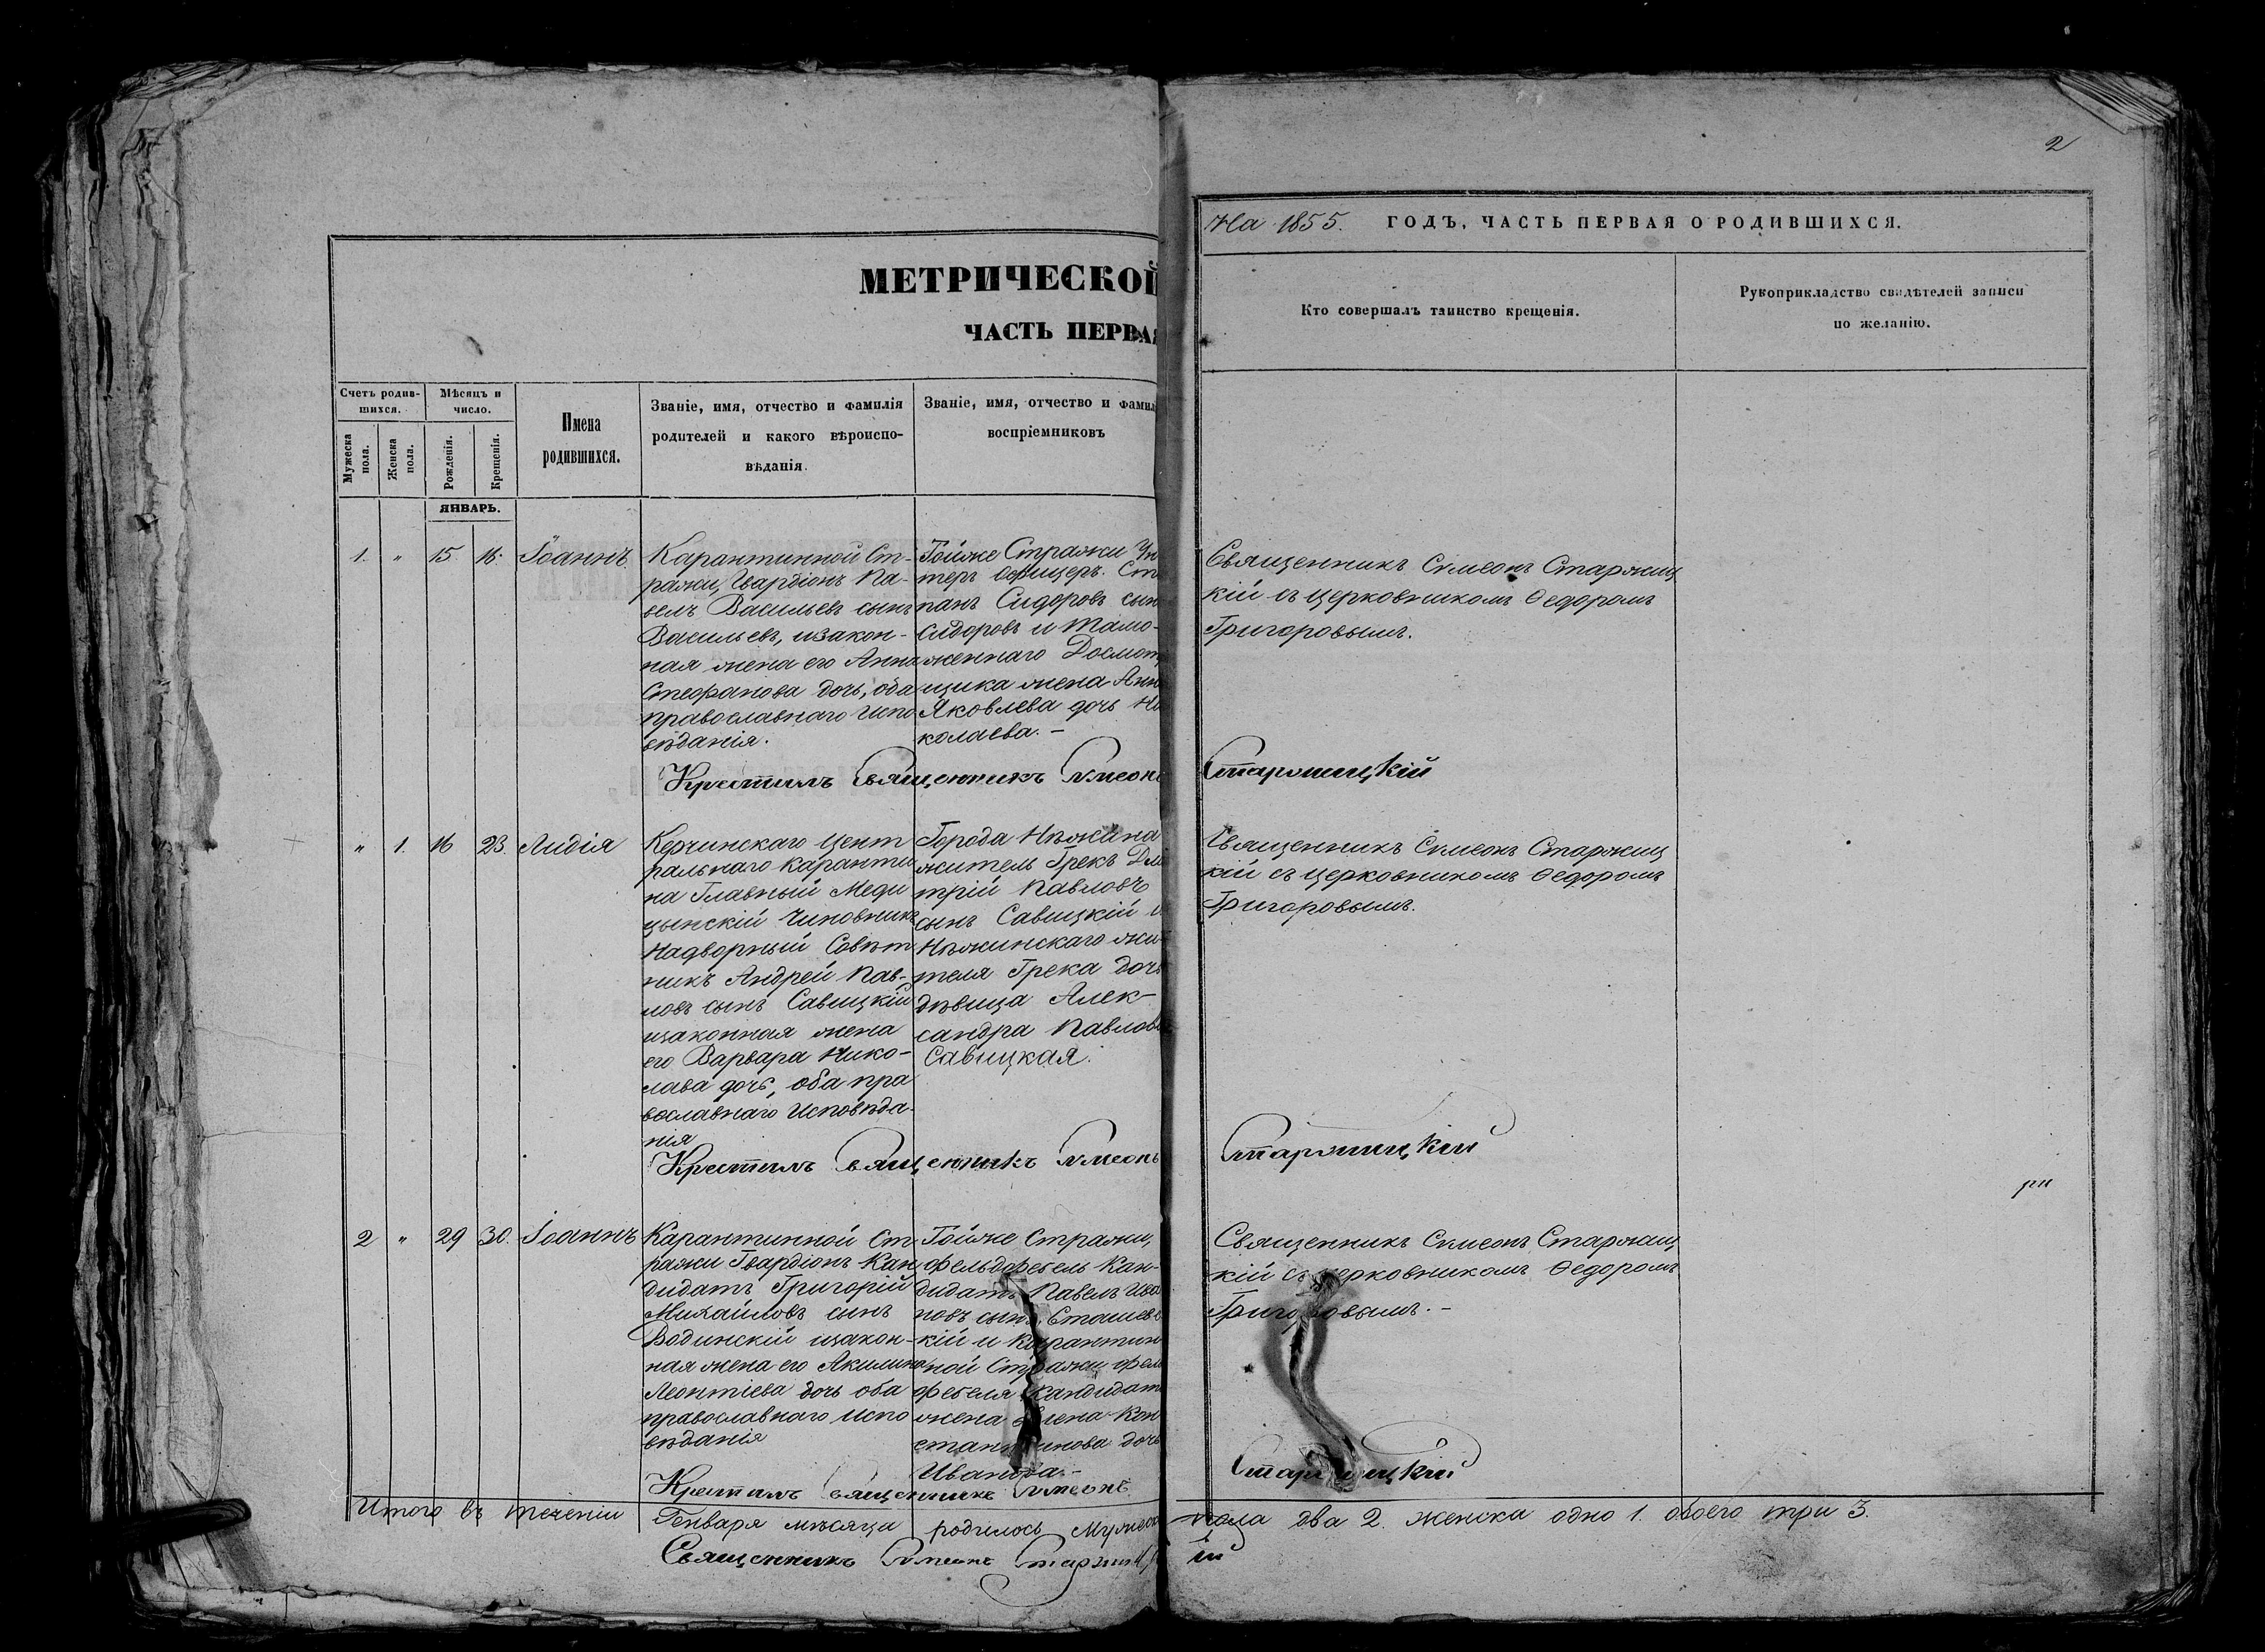 2
МЕТРИЧЕСКОЙ
ЧАСТЬ ПЕРВАЯ
На 1855. ГОДЪ, ЧАСТЬ ПЕРВАЯ О РОДИВШИХСЯ.
Счетъ родив-
шихся.
Мужеска
пола.
Женска
пола.
Мѣсяцъ и
число.
Рожденія.
Крещенія.
Имена
родившихся.
Званіе, имя, отчество и фамилія
родителей и какого вѣроиспо-
вѣданія.
Званіе, имя, отчество и фамил
воспріемниковъ
Кто совершалъ таинство крещенія.
Рукоприкладство свидѣтелей записи
по желанію.
ЯНВАРЬ.
1. " 15 16. Іоаннъ
Карантинной Ст-
ражи, Гвардіонъ Па-
велъ Васильевъ сынъ
Васильевъ, изакон-
ная жена его Анна
Стефанова дочь, оба
православнаго Испо
вѣданія.
Тойже Стражи Ун
теръ Офицеръ. Сте
панъ Сидоровъ сын
Сидоровъ и Тамо-
женнаго Досмотр
щика жена Анн
Яковлева дочь Ни
колаева. -
Священникъ Сѵмеонъ Старжиц
кій съ церковникомъ Ѳедоромъ
Григоровымъ.
Крестилъ Священникъ Сѵмеонъ Старжицкій
" 1. 16 23. Лидія
Керчинскаго Цент
ральнаго Каранти
на Главный Меди
цынскій Чиновникъ
Надворный Совѣт
никъ Андрей Пав-
ловъ сынъ Савицкій
изаконная жена
его Варвара Нико-
лава дочь, оба пра
вославнаго Исповѣда-
нія
Города Нѣжина
житель Грекъ Дми
трій Павловъ
сынъ Савицкій и
Нѣжинскаго жи-
теля Грека дочь
дѣвица Алек-
сандра Павлова
Савицкая.
Священникъ Сѵмеонъ Старжиц
кій съ церковникомъ Ѳедоромъ
Григоровымъ.
Крестилъ Священникъ Сѵмеонъ Старжицкій
2 " 29 30. Іоаннъ
Карантинной Ст
ражи Гвардіонъ Кан
дидатъ Григорій
Михайловъ сынъ
Водинскій изакон-
ная жена его Акилина
Леонтіева дочь оба
православнаго Испо
вѣданія
Тойже Стражи,
фельдфебель Кан-
дидатъ Павелъ Ива
новъ сынъ. Сташевс
кій и Карантин
ной Стражи фель
фебеля Кандидат
жена Елена Кон
стантинова дочь
Иванова.-
Священникъ Сѵмеонъ Старжиц
кій съ церковникомъ Ѳедоромъ
Григоровымъ. -
Крестилъ Священникъ Сѵмеонъ Старжицкій
Итого въ теченіи Генваря мѣсяца родилось Мужеск пола два 2. женска одно 1. обоего три 3.
Священникъ Сѵмеонъ Старжицкій